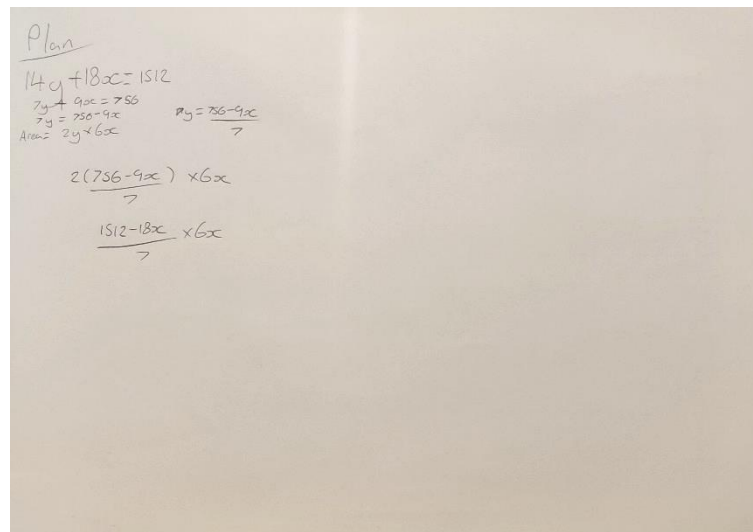 Plan
14y + 18x = 1512
7y + 9x = 756
7y = 756 - 9x
y = 756-9x / 7
Area = 2y × 6x
2(756-9x) / 7 × 6x
1512-18x / 7 × 6x